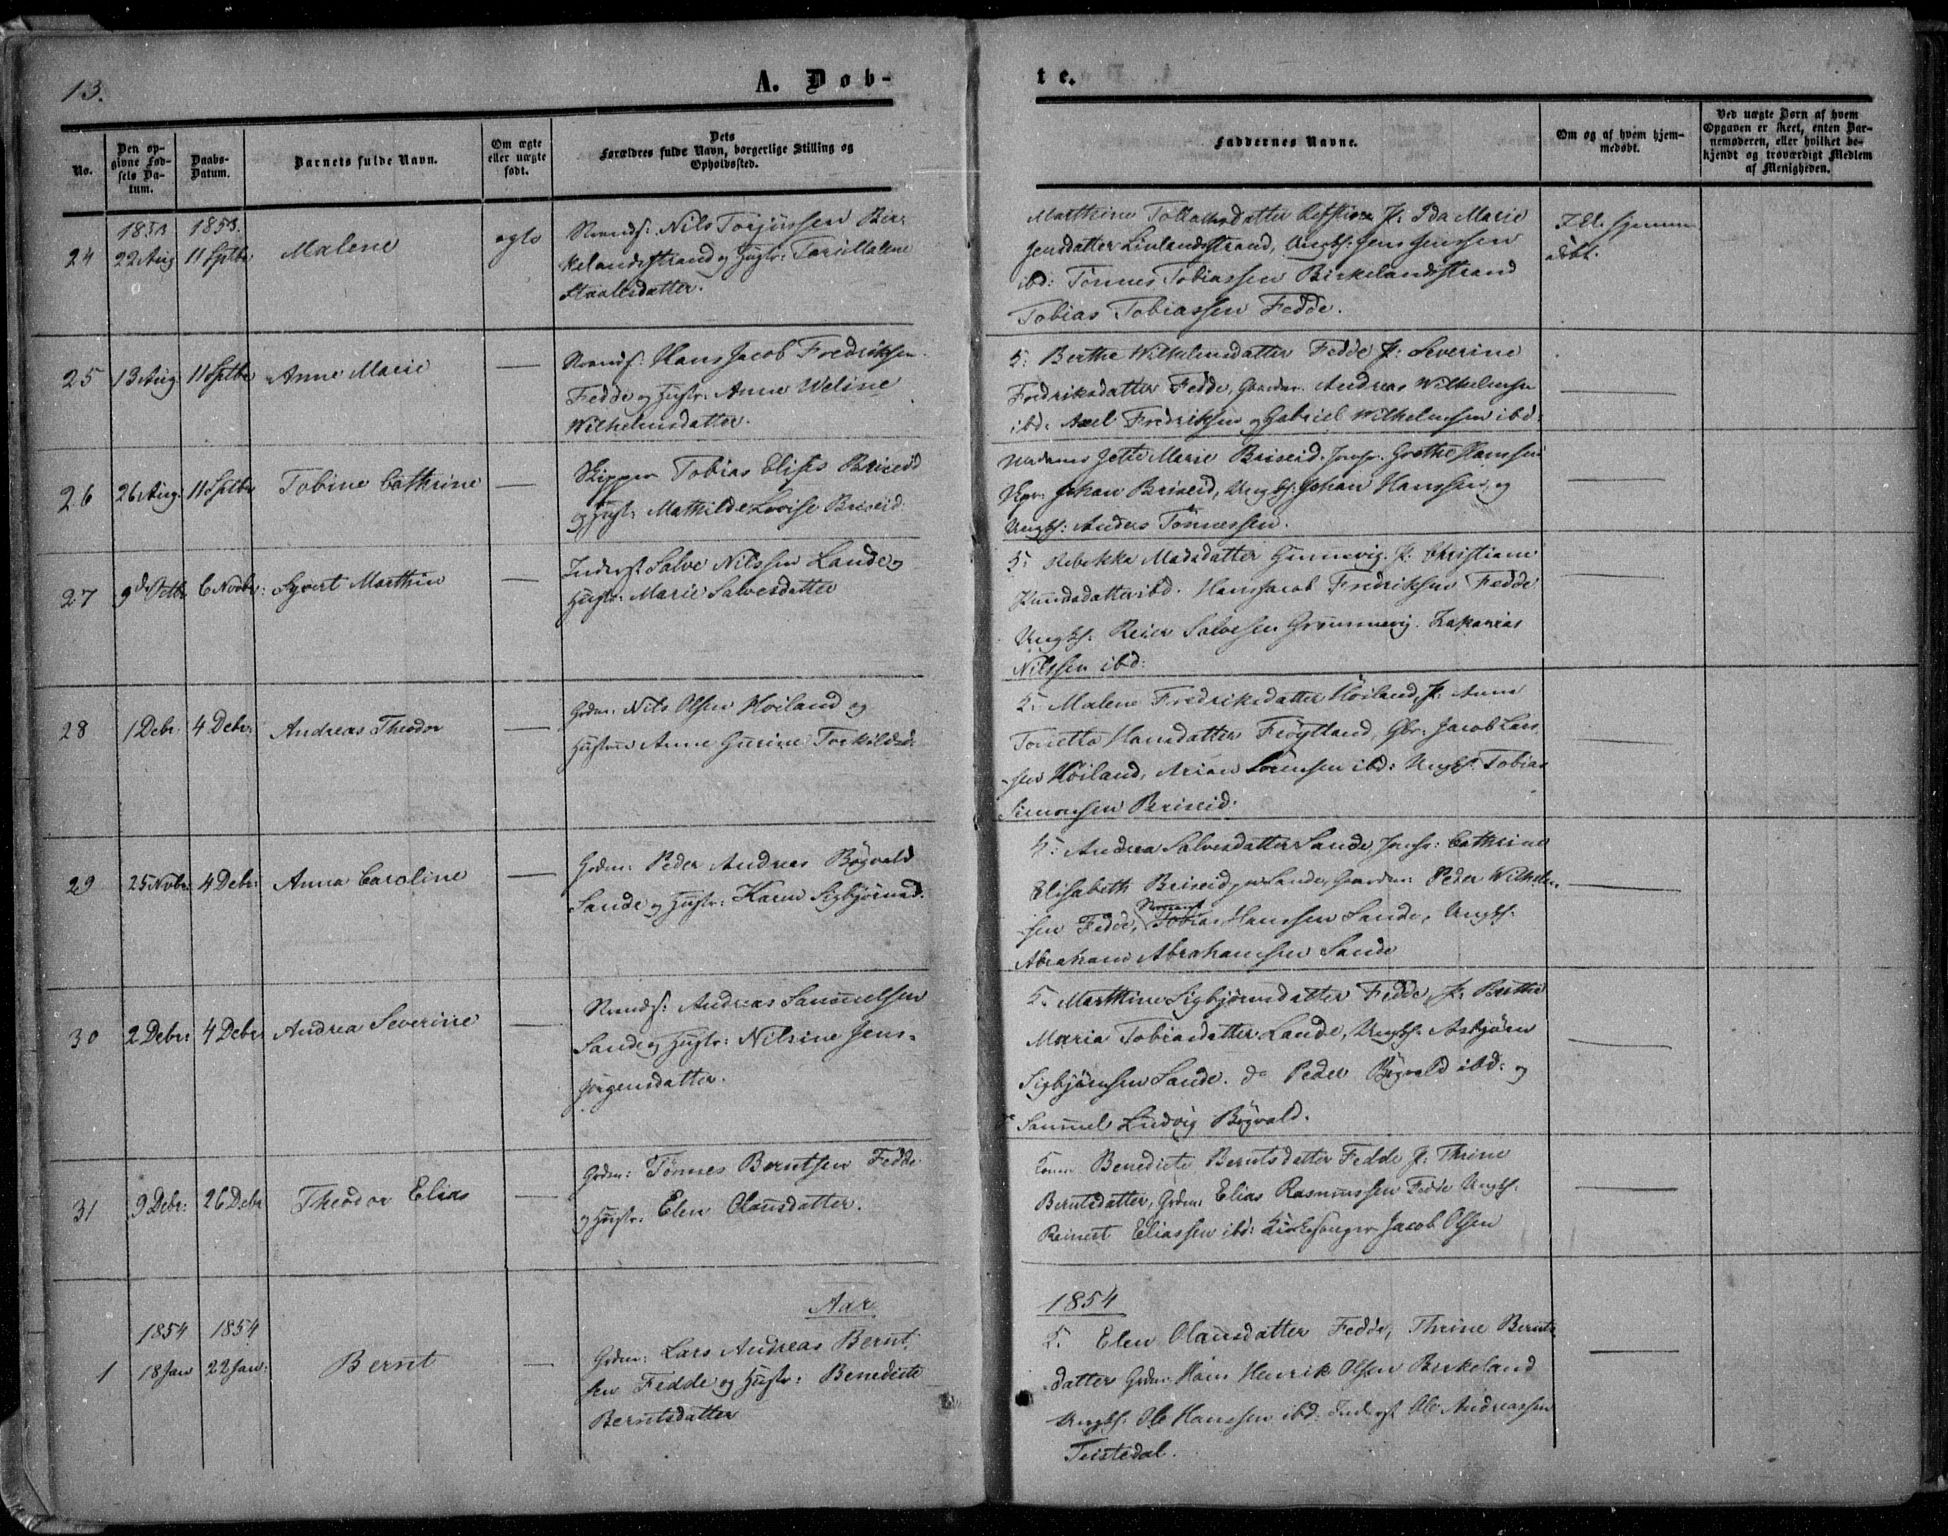 13.
A. Døb-
te.
No.
Den op-
givne Fød-
sels Da-
tum.
Daabs-
Datum.
Barnets fulde Navn.
Om ægte
eller uægte
født.
Dets
Forældres fulde Navn, borgerlige Stilling og
Opholdssted.
Faddernes Navne.
Om og af hvem hjem-
medøbt.
Ved uægte Børn af hvem
Opgaven er skeet, enten Bar-
nemoderen, eller hvilket be-
kjendt og troværdigt Medlem
af Menigheden.
1853 1853.
24 22 Aug 11 Septbr Malene ægte
Nils Torjussen Bir-
kelandsstrand og Hustr: Malene
Staalesdatter.
Marthine J: Ida Marie
Jensdatter Birkelandsstrand, Ungk: Jens Jenssen
ibd: Tönnes Tobiassen Birkelandsstrand
Tobias Tobiassen Fedde.
Ikke hjemme
døbt.
25 13 Aug 11 Septbr Anne Marie —
Hans Jacob Fredriksen
Fedde og Hustr: Anne Weline
Wilhelmsdatter.
K: Berthe Wilhelmsdatter Fedde J: Severine
Fredriksdatter Fedde, Gaardm. Andreas Wilhelmsen
ibd: Axel Fredriksen og Gabriel Wilhelmsen ibd:
—
26 26 Aug: 11 Septbr Tobine Cathrine —
Skipper Tobias Elias Briseid
og Hustr: Mathilde Lovise Briseid
Madame Jette Marie Briseid. Jomfr. Grethe Hanssen
Skpr: Johan Briseid, Ungk: Johan Hanssen og
Ungk: Anders Tönnessen.
—
27 9de Octb 6 Novbr: Syvert Marthin —
Inderst Salve Nilssen Lande og
Hustr: Marie Salvesdatter
K: Rebekka Madsdatter J: Christiane
ibd. Hans Jacob Fredriksen Fedde
Ungk: Reier Salvesen Zakarias
Nilssen ibd:
—
28 1 Debr 4 Debr: Andreas Theodor —
Grdm: Nils Olsen Höiland og
Hustru Anne Gurine Torkildsd:
K: Malene Fredriksdatter Höiland, J: Anne
Tonette Hansdatter Fröytland, Gbr: Jacob Lars
sen Höiland, Arian Sörensen ibd: Ungk: Tobias
Simonsen Briseid.
—
29 25 Nvbr: 4 Debr: Anna Caroline —
Grdm: Peder Andreas Bögvald
Sande og Hustr: Karen Sigbjörnsd.
K: Andrea Salvesdatter Sande Jomfr: Cathrine
Elisabeth Briseid Sande, Gaardm: Peder Wilhelm-
sen Fedde, Tobias Hanssen Sande, Ungk:
Abraham Abrahamsen Sande
—
30 2 Debr: 4 Debr: Andrea Severine —
Andreas Samuelsen
Sande og Hustr: Nilsine Jens-
Jörgensdatter.
K. Marthine Sigbjörnsdatter Fedde, J: Berthe
Maria Tobiasdatter Lande, Ungk: Asbjörn
Sigbjörnsen Sande. do Peder Bögvald ibd: og
do Samuel Ludvig Bögvald.
—
31 9 Debr: 26 Debr Theodor Elias —
Grdm: Tönnes Berntsen Fedde
og Hustr: Elen Olausdatter.
Benedicte Berntsdatter Fedde J: Thrine
Berntsdatter, Grdm: Elias Rasmussen Fedde Ungk:
Reinert Eliassen ibd: Kirkesanger Jacob Olsen
—
Aar
1854
1854 1854
1 18 Jan 22 Jan: Bernt —
Grdm: Lars Andreas Bernt-
sen Fedde og Hustr: Benedicte
Berntsdatter
K. Elen Olausdatter Fedde, Thrine Bernts-
datter Grdm: Hans Henrik Olsen Birkeland
Ungk: Ole Hanssen ibd: Inderst Ole Andreassen
Teistedal.
—